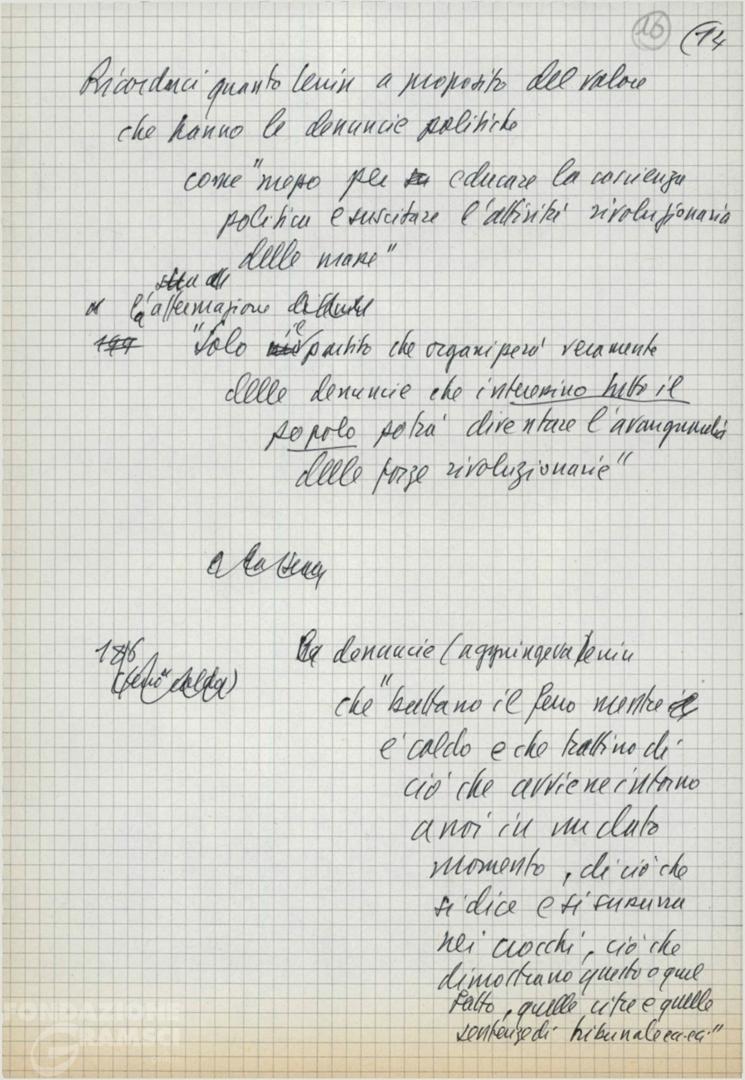 16 (14
Ricordarci quanto Lenin a proposito del valore
che hanno le denuncie politiche
come "mezzo per educare la coscienza
politica e suscitare l'attività rivoluzionaria
delle masse"
l'affermazione
"Solo il partito che organizzerà veramente
delle denuncie che interessino tutto il
popolo potrà diventare l'avanguardia
delle forze rivoluzionarie"
186
La denuncie (aggiungeva Lenin
che "battano il ferro mentre
è caldo e che trattino di
ciò che avviene intorno
a noi in un dato
momento, di ciò che
si dice e si sussurra
nei crocchi, ciò che
dimostrano questo o quel
fatto, quelle cifre e quelle
sentenze di tribunale ecc. ecc."
FONDAZIONE
GRAMSCI